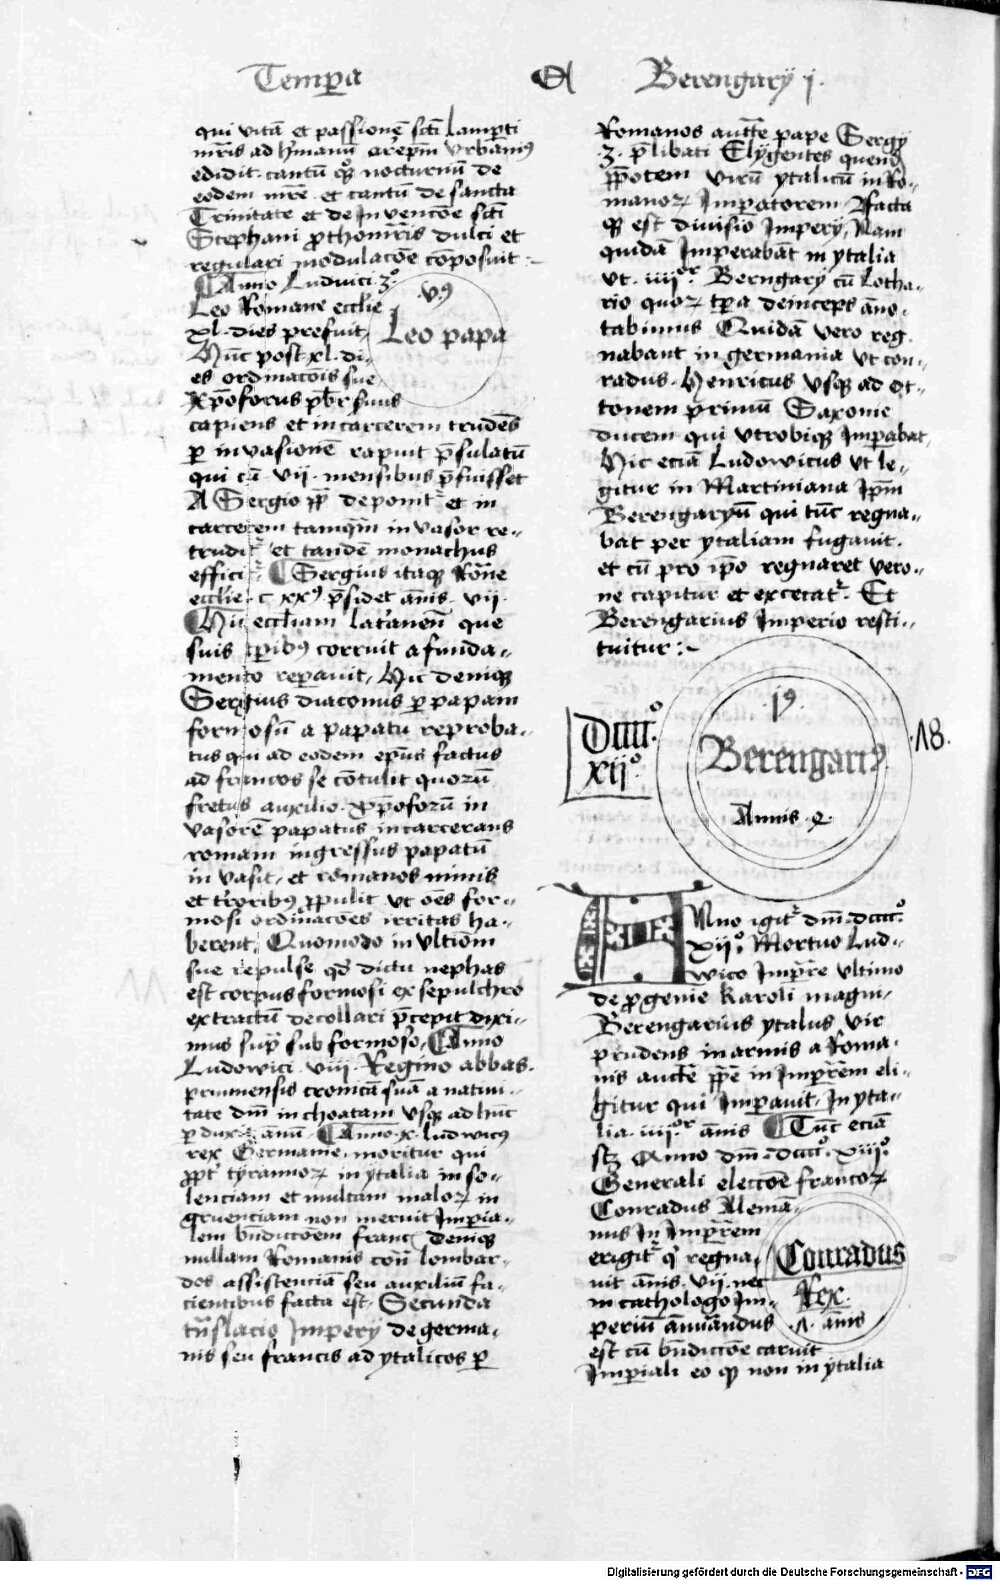 Temp̱a
Berengarÿ j.
qui vitā et passionē sc̄ti lamp̱ti
mr̄is ad h'manū arc̄ep̄m Vrbaniꝰ
edidit. cantū qꝫ nocturnū de
eodem mr̄e. et cantū de sancta
Trinitate et de Jnvencōe sc̄ti
Stephani ꝓthomr̄is dulci et
regulari modulacōe cōposuit :~
Anno Luduici 3.º
Leo Romane eccl'ie
xl. dies prefuit,
Hūc post xl. di-
es ordinacōis sue
xp̄oforus pb̄r suus
capiens et incarcerem trudēs
ꝑ invasionē rapuit p̄sulatū
qui cū vii. mensibus p̄fuisset
A Sergio pp̄ deponit' et in
carcerem tamqm̄ invasor re-
trudit' et tandē monachus
effici. Sergius itaqꝫ Rōne
eccl'ie. c xxꝰ p̄sidet ānis. vii.
Hic eccl'iam lat'anen̄ que
suis tp̄ibꝰ corruit a funda-
mento rep̱avit, Hic deniqꝫ
Sergius diaconus ꝑ papam
formosū a papatu reproba-
tus qui ad eodem ep̄us factus
ad francos se cōtulit quorū
fretus auxilio. xp̄oforū in
vasorē papatus incarcerans
romam ingressus papatū
invasit, et romanos minis
et t'roribꝰ ꝓpulit ut oēs for-
mosi ordinacōes irritas ha-
berent. Quomodo in ultiōm
sue repulse qd̄ dictu nephas
est corpus formosi ex sepulchro
extractū decollari p̄cepit dixi-
mus sup̱ sub formoso, Anno
Ludowici viii. Regino abbas
prumensis cronicā suā a nativi-
tate dm̄ inchoatam usqꝫ ad hūc
ꝑduxit ānū. Anno .x. ludwicꝰ
rex Germanie, moritur qui
ꝓpt' tyrannoꝝ in ytalia inso-
lenciam et multam maloꝝ in
gruenciam non meruit Jmp̱ia-
lem bn̄diccōem franc Deniqꝫ
nullam Romanis con̄ lombar-
dos assistenciā seu auxiliū fa-
cientibus facta est. Secunda
tn̄slacio Jmperÿ de germa-
nis seu francis ad ytalicos ꝑ
.v.ꝰ
Leo papa
Romanos auct̄e pape Sergÿ
.3. p̄libati Elygentes quend
p̄potem virū ytalicū in Ro-
manoꝝ Jmp̱atorem. Facta
qꝫ est divisio Jmperÿ, Nam
quidā Jmperabāt in ytalia
vt. iiii.or Berngarÿ cū Lotha-
rio quoꝝ tp̱a deinceps āno-
tabimus Quidā vero reg
nabant in germania vt con-
radus. Henricus usqꝫ ad ot-
tonem primū Saxonie
ducem qui vtrobiqꝫ Jmp̱abat.
Hic eciā Ludowicus vt le-
gitur in Martiniana Jp̄m
Berengaryū qui tūc regna-
bat per ytaliam fugavit.
et cū pro ip̄o regnaret vero-
ne capitur et excecat'. Et
Berengarius Jmperio resti-
tuitur :~
Dcccc.º
xij.º
.iꝰ.
Berengariꝰ
Annis 4.
.18.
Anno igit' dm̄. dcccc.º
xij.º Mortuo Lud-
wico Jmp̱re ultimo
de ꝓgenie Karoli magni.
Berengarius ytalus vir
prudens in armis a Roma-
nis auct̄e pp̄e in Jmp̱rem eli-
gitur qui Jmp̱avit. Jn yta-
lia. iiii.or ānis Tūc eciā
sꝫ Anno dm̄. dcccc.º xiii.º
Generali elecc̄oe francoꝝ
Conradus Alemā-
nus Jn Jmp̱rem
erigit' qꝫ regna-
vit ānis. vii. nec
in cathologo Jm-
periū ānuāndus
est cū bn̄diccōe caruit
Jmp̱iali eo qꝫ non in ytalia
Conradus
Rex.
.7. ānis
Digitalisierung gefördert durch die Deutsche Forschungsgemeinschaft - DFG